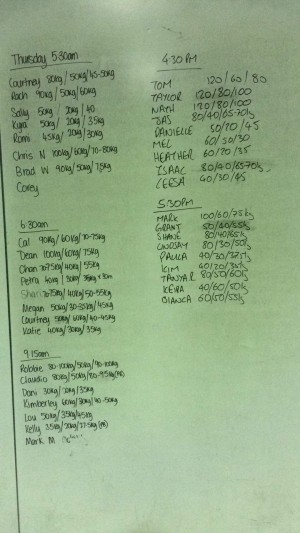 Thursday 5:30am
Courtney 80kg/50kg/45-50kg
Rach 90kg/50kg/60kg
Sally 50kg/20kg/40
Kyra 50kg/20kg/35kg
Romi 45kg/20kg/30kg
Chris N 100kg/60kg/70-80kg
Brad W 90kg/50kg/75kg
Corey
6:30am
Cal 90kg/60kg/70-75kg
Dean 100kg/60kg/75kg
Chan 70-75kg/40kg/55kg
Petra 40kg/30kg/
Shan 70-75kg/40kg/50-55kg
Megan 50kg/30-35kg/45kg
Courtney 50kg/60kg/40-45kg
Katie 40kg/30kg/35kg
9:15am
Robbie 80-100kg/50kg/90-100kg
Claudio 80kg/50kg/80-95kg (PR)
Dani 30kg/20kg/35kg
Kimberley 60kg/30kg/40-50kg
Lou 50kg/35kg/45kg
Kelly 35kg/20kg/27.5kg (PR)
Mark M
4:30PM
TOM 120/60/80
TAYLOR 120/80/100
NATH 120/80/100
BAS 80/40/65-70kg
DANIELLE 50/20/45
MEL 60/30/30
HEATHER 60/20/35
ISAAC 80/40/65-70kg
LEESA 40/30/45
5:30PM
MARK 100/60/75kg
GRANT 50/40/55kg
SHANE 80/40/65kg
LINDSAY 80/30/50kg
PAULA 40/20/32.5kg
KIM 40/20/35kg
TANYA R 80/50/60kg
KEIRA 40/60/50kg
BIANCA 60/50/55kg